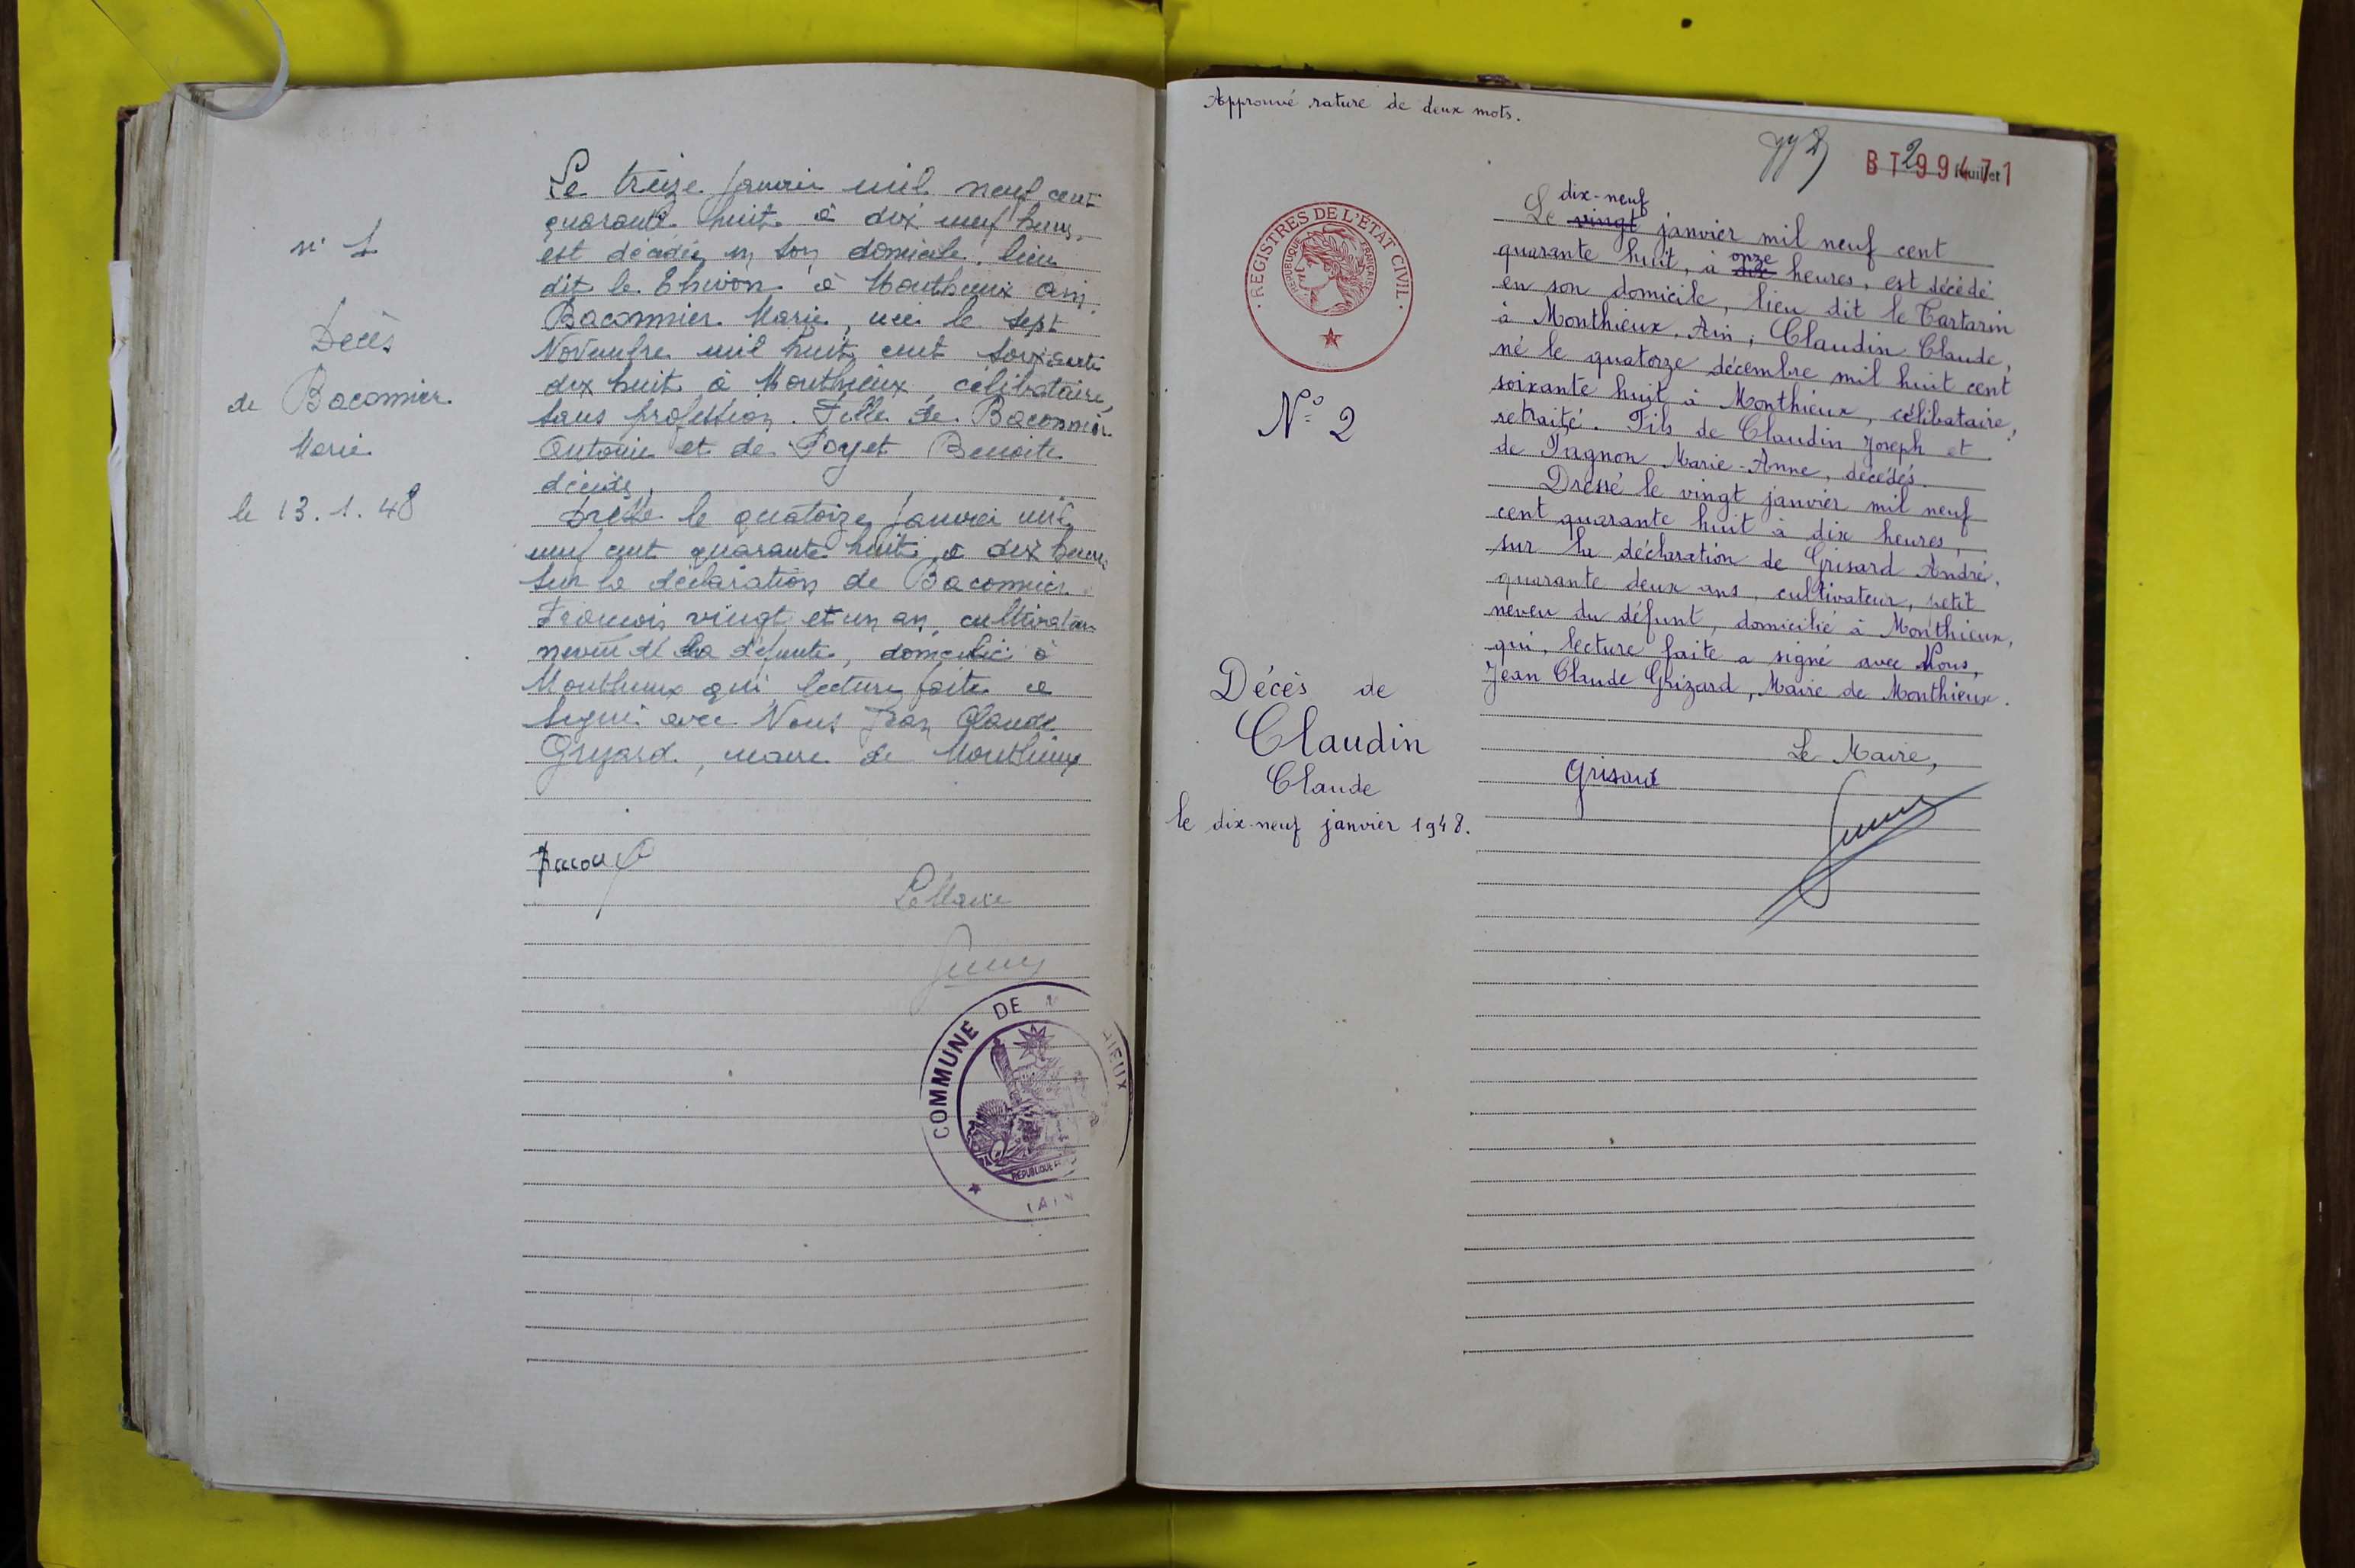 n° 1
Décès
de Baconnier
Marie
le 13.1.48
Le treize Janvier mil neuf cent
quarante huit à dix neuf heures
est décédée en son domicile, lieu
dit le Thivon à Monthieux Ain
Baconnier Marie, née le sept
Novembre mil huit cent soixante
dix huit à Monthieux, célibataire,
sans profession. Fille de Baconnier
Antoine et de Poyet Benoite
décédés,
Dressé le quatorze Janvier mil
neuf cent quarante huit à dix heures
sur la déclaration de Baconnier
François vingt et un an, cultivateur
neveu de la défunte, domicilié à
Monthieux qui lecture faite a
signé avec Nous Jean Claude
Grizard, maire de Monthieux
Le Maire
COMMUNE DE
IEUX
REPUBLIQUE
(AIN
Approuvé rature de deux mots.
BT 299471
2
feuillet
REGISTRES DE L'ÉTAT CIVIL
REPUBLIQUE FRANÇAISE
N° 2
Décès de
Claudin
Claude
le dix-neuf janvier 1948.
dix-neuf
Le vingt janvier mil neuf cent
onze
quarante huit, à dix heures, est décédé
en son domicile, lieu dit le Tartarin
à Monthieux, Ain, Claudin Claude,
né le quatorze décembre mil huit cent
soixante huit à Monthieux, célibataire,
retraité. Fils de Claudin Joseph et
de Pagnon Marie-Anne, décédés.
Dressé le vingt janvier mil neuf
cent quarante huit à dix heures,
sur la déclaration de Grisard André,
quarante deux ans, cultivateur, petit
neveu du défunt, domicilié à Monthieux,
qui, lecture faite a signé avec Nous,
Jean Claude Grizard, Maire de Monthieux.
Le Maire,
Grisard